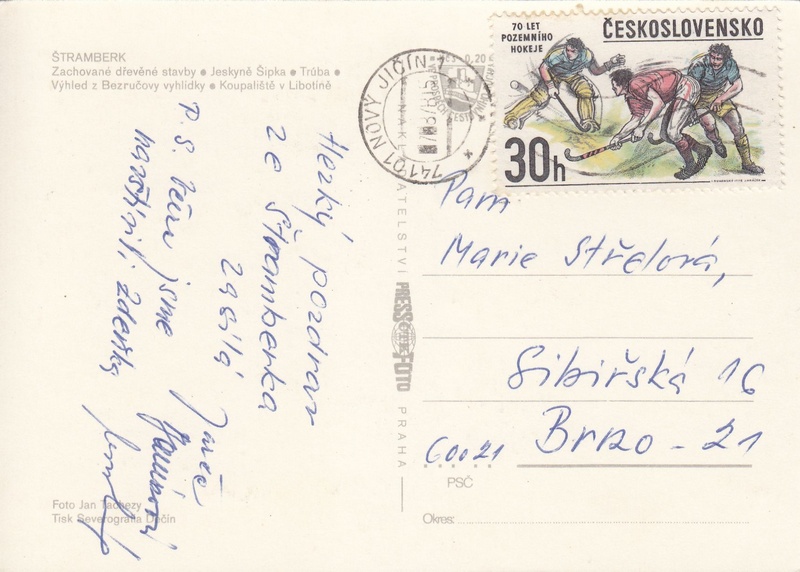 ŠTRAMBERK
Zachované dřevěné stavby ● Jeskyně Šipka ● Trúba ●
Výhled z Bezručovy vyhlídky ● Koupaliště v Libotíně
70 LET
POZEMNÍHO
HOKEJE
ČESKOSLOVENSKO
30h
741 01 NOVÝ JIČÍN 1
Hezký pozdrav
ze Štramberka
zasílá
P.S. Včera jsme
navštívili Zdeňka
Paní
Marie Střelová,
Sibiřská 16
60021 Brno - 21
PSČ
Okres:
NAKLADATELSTVÍ PRESSFOTO PRAHA
Foto Jan Tachezy
Tisk Severografia Děčín